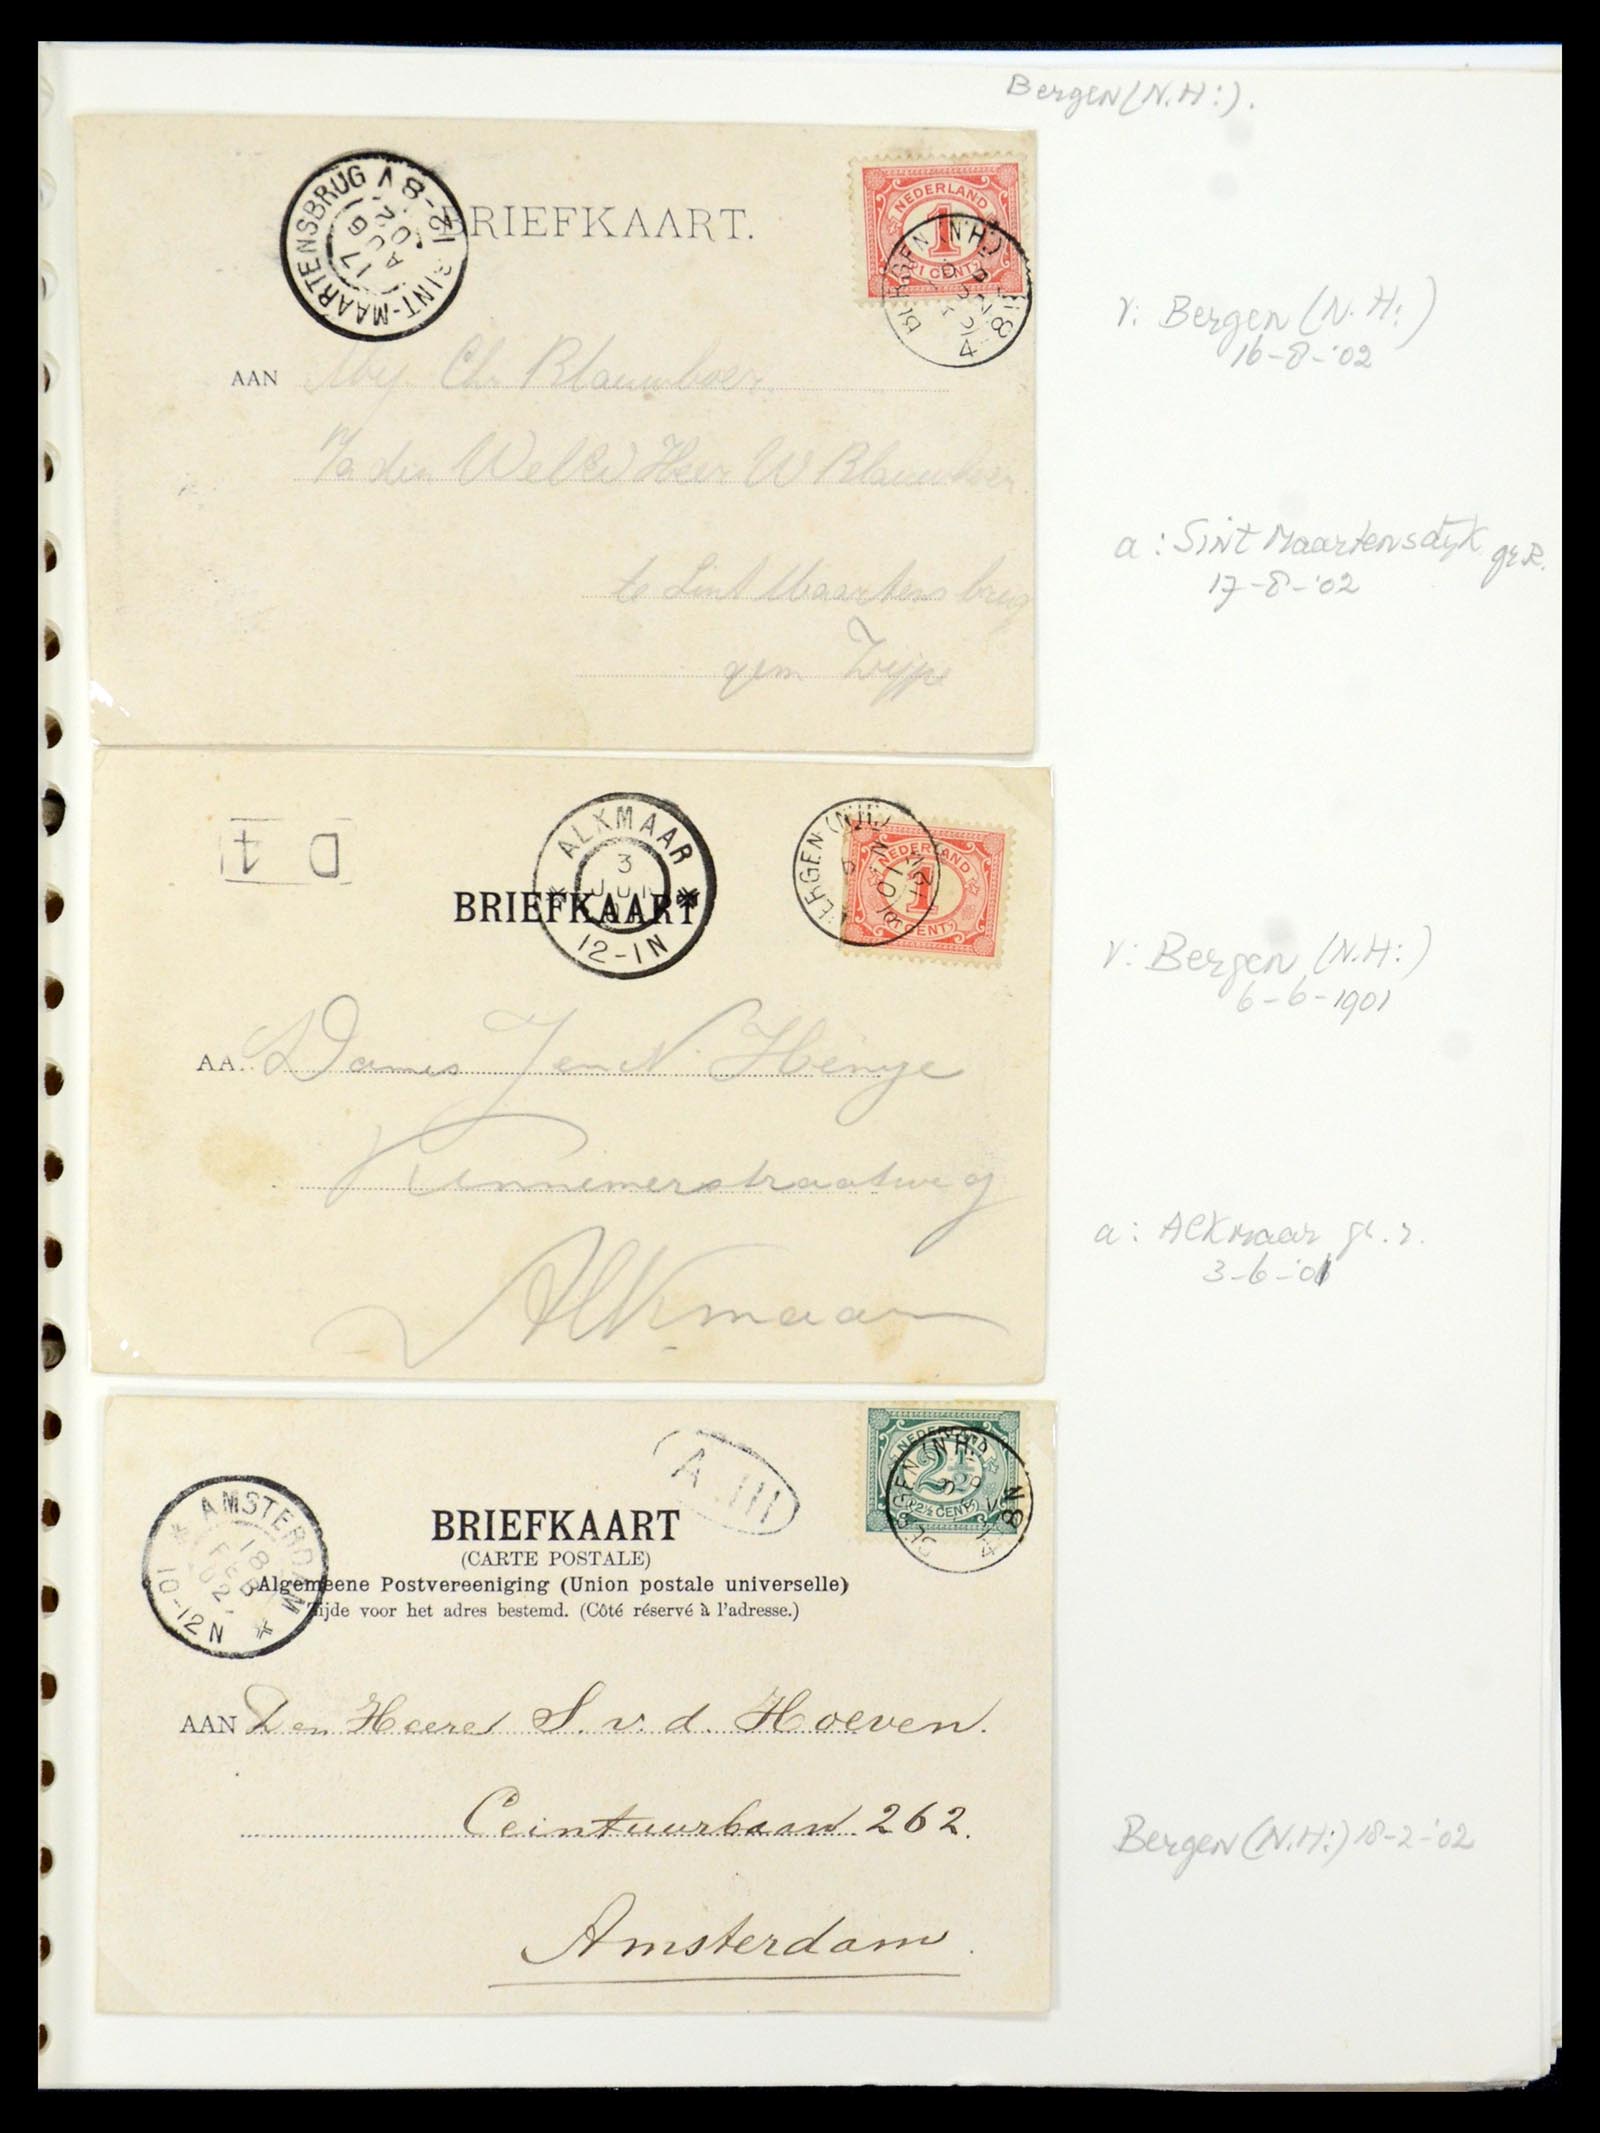 Bergen (N.H:).
SINT-MAARTENSBRUG
8-12 V
17
AUG
02
BRIEFKAART.
NEDERLAND
1
(1 CENT)
BERGEN (N.H.)
4-8 N
AAN Mej. Chr Blauwboer.
den Heer W Blauwboer.
te Sint Maartensbrug
gem Zijpe
v: Bergen (N.H:)
16-8-'02
a: Sint Maartensdijk gr.R.
17-8-'02
D 7
ALKMAAR
3
JUN
12-1N
BRIEFKAART
BERGEN (N.H.)
NEDERLAND
1
(1 CENT)
AA. Dames J en N. Henge
Kennemerstraatweg
Alkmaar
v: Bergen (N.H:)
6-6-1901
a: Alkmaar gr. r.
3-6-'01
A III
NEDERLAND
2½
(2½ CENT)
BERGEN (N.H.)
4-8 N
AMSTERDAM
18
FEB
02
10-12N
BRIEFKAART
(CARTE POSTALE)
Algemeene Postvereeniging (Union postale universelle)
Zijde voor het adres bestemd. (Côté réservé à l'adresse.)
AAN Den Heere S. v. d. Hoeven.
Ceintuurbaan 262.
Amsterdam.
Bergen (N.H:) 18-2-'02